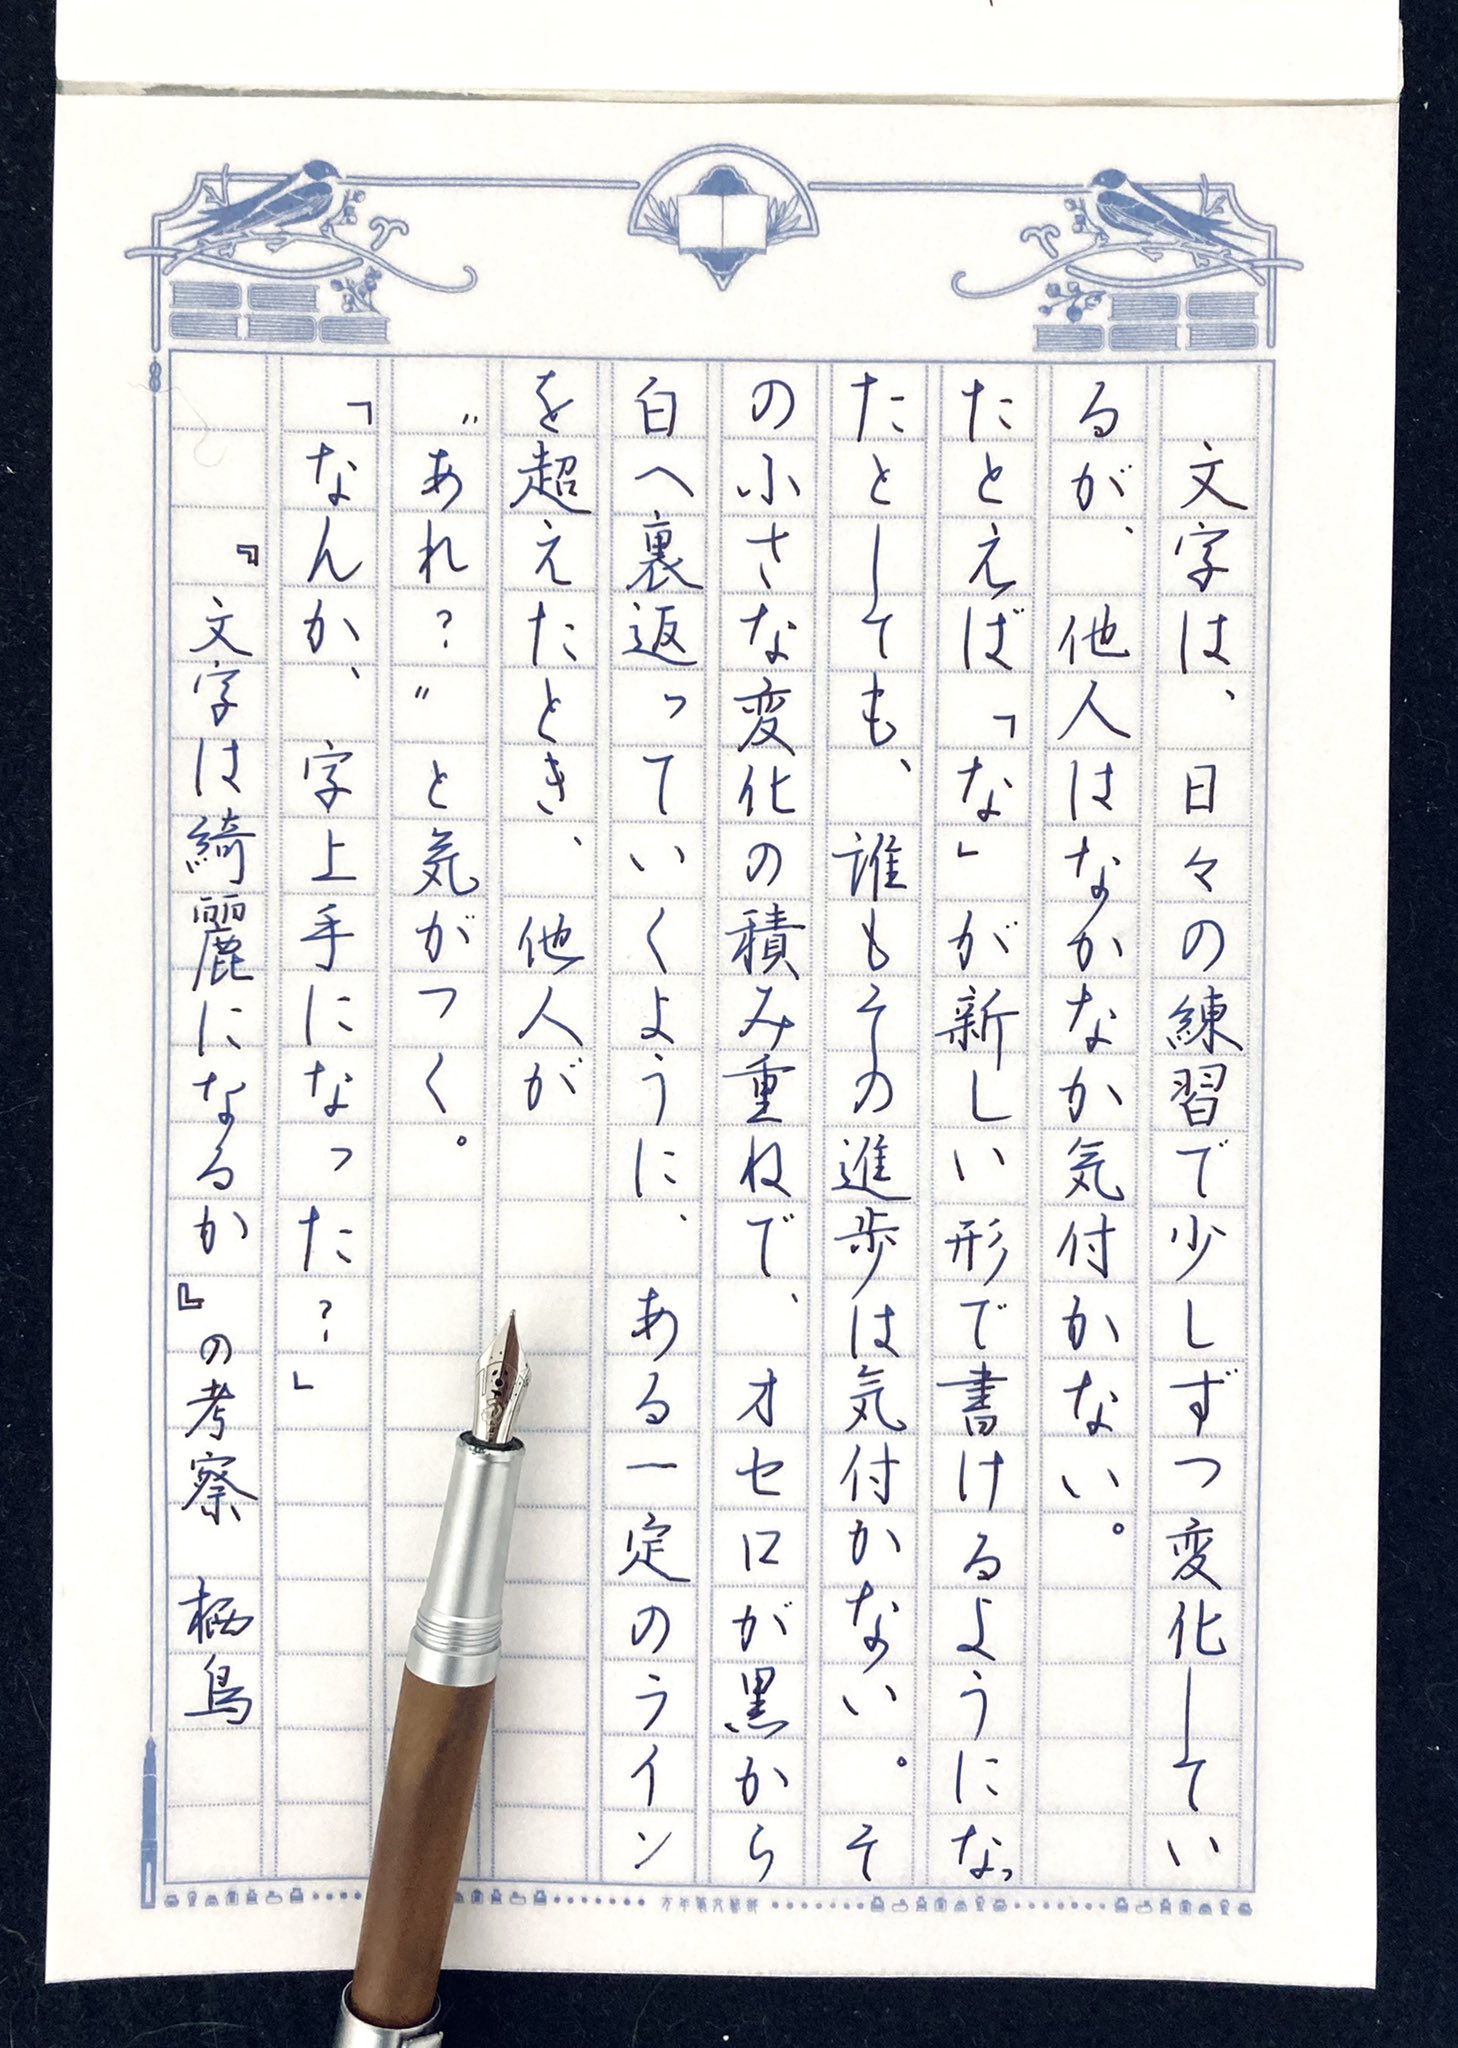 文字は、日々の練習で少しずつ変化してい
るが、他人はなかなか気付かない。
たとえば「な」が新しい形で書けるようになっ
たとしても、誰もその進歩は気付かない。そ
の小さな変化の積み重ねで、オセロが黒から
白へ裏返っていくように、ある一定のライン
を超えたとき、他人が
〝あれ？〟と気がつく。
「なんか、字上手になった？」
『文字は綺麗になるか』の考察 栖鳥